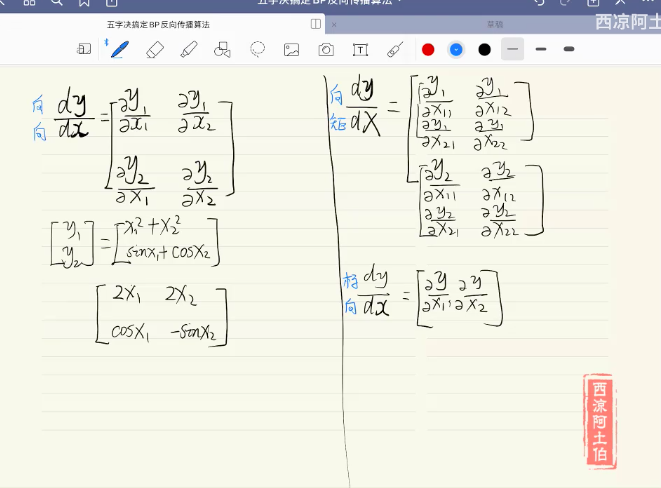 五字决搞定BP反向传播算法
五字决搞定BP反向传播算法
草稿
西凉阿土
向
向
dy/dx = [∂y₁/∂x₁ ∂y₁/∂x₂
∂y₂/∂x₁ ∂y₂/∂x₂]
[y₁
y₂] = [x₁² + x₂²
sinx₁ + cosx₂]
[2x₁ 2x₂
cosx₁ -sinx₂]
向
矩
dy/dX = [[∂y₁/∂x₁₁ ∂y₁/∂x₁₂
∂y₁/∂x₂₁ ∂y₁/∂x₂₂]
[∂y₂/∂x₁₁ ∂y₂/∂x₁₂
∂y₂/∂x₂₁ ∂y₂/∂x₂₂]
标
向
dy/dx = [∂y/∂x₁, ∂y/∂x₂]
西凉阿土伯